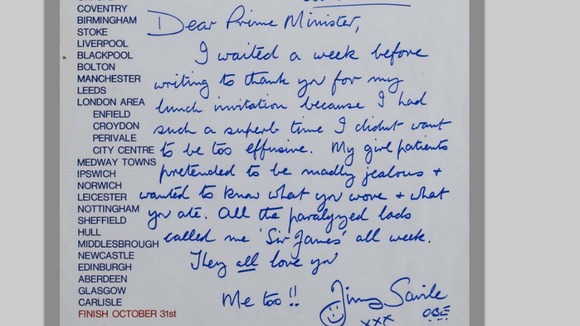 COVENTRY
BIRMINGHAM
STOKE
LIVERPOOL
BLACKPOOL
BOLTON
MANCHESTER
LEEDS
LONDON AREA
ENFIELD
CROYDON
PERIVALE
CITY CENTRE
MEDWAY TOWNS
IPSWICH
NORWICH
LEICESTER
NOTTINGHAM
SHEFFIELD
HULL
MIDDLESBROUGH
NEWCASTLE
EDINBURGH
ABERDEEN
GLASGOW
CARLISLE
FINISH OCTOBER 31st
Dear Prime Minister,
I waited a week before
writing to thank you for my
lunch invitation because I had
such a superb time I didnt want
to be too effusive. My girl patients
pretended to be madly jealous +
wanted to know what you wore + what
you ate. All the paralyzed lads
called me 'Sir James' all week.
They all love you
Me too !!
Jimmy Savile
OBE
xxx